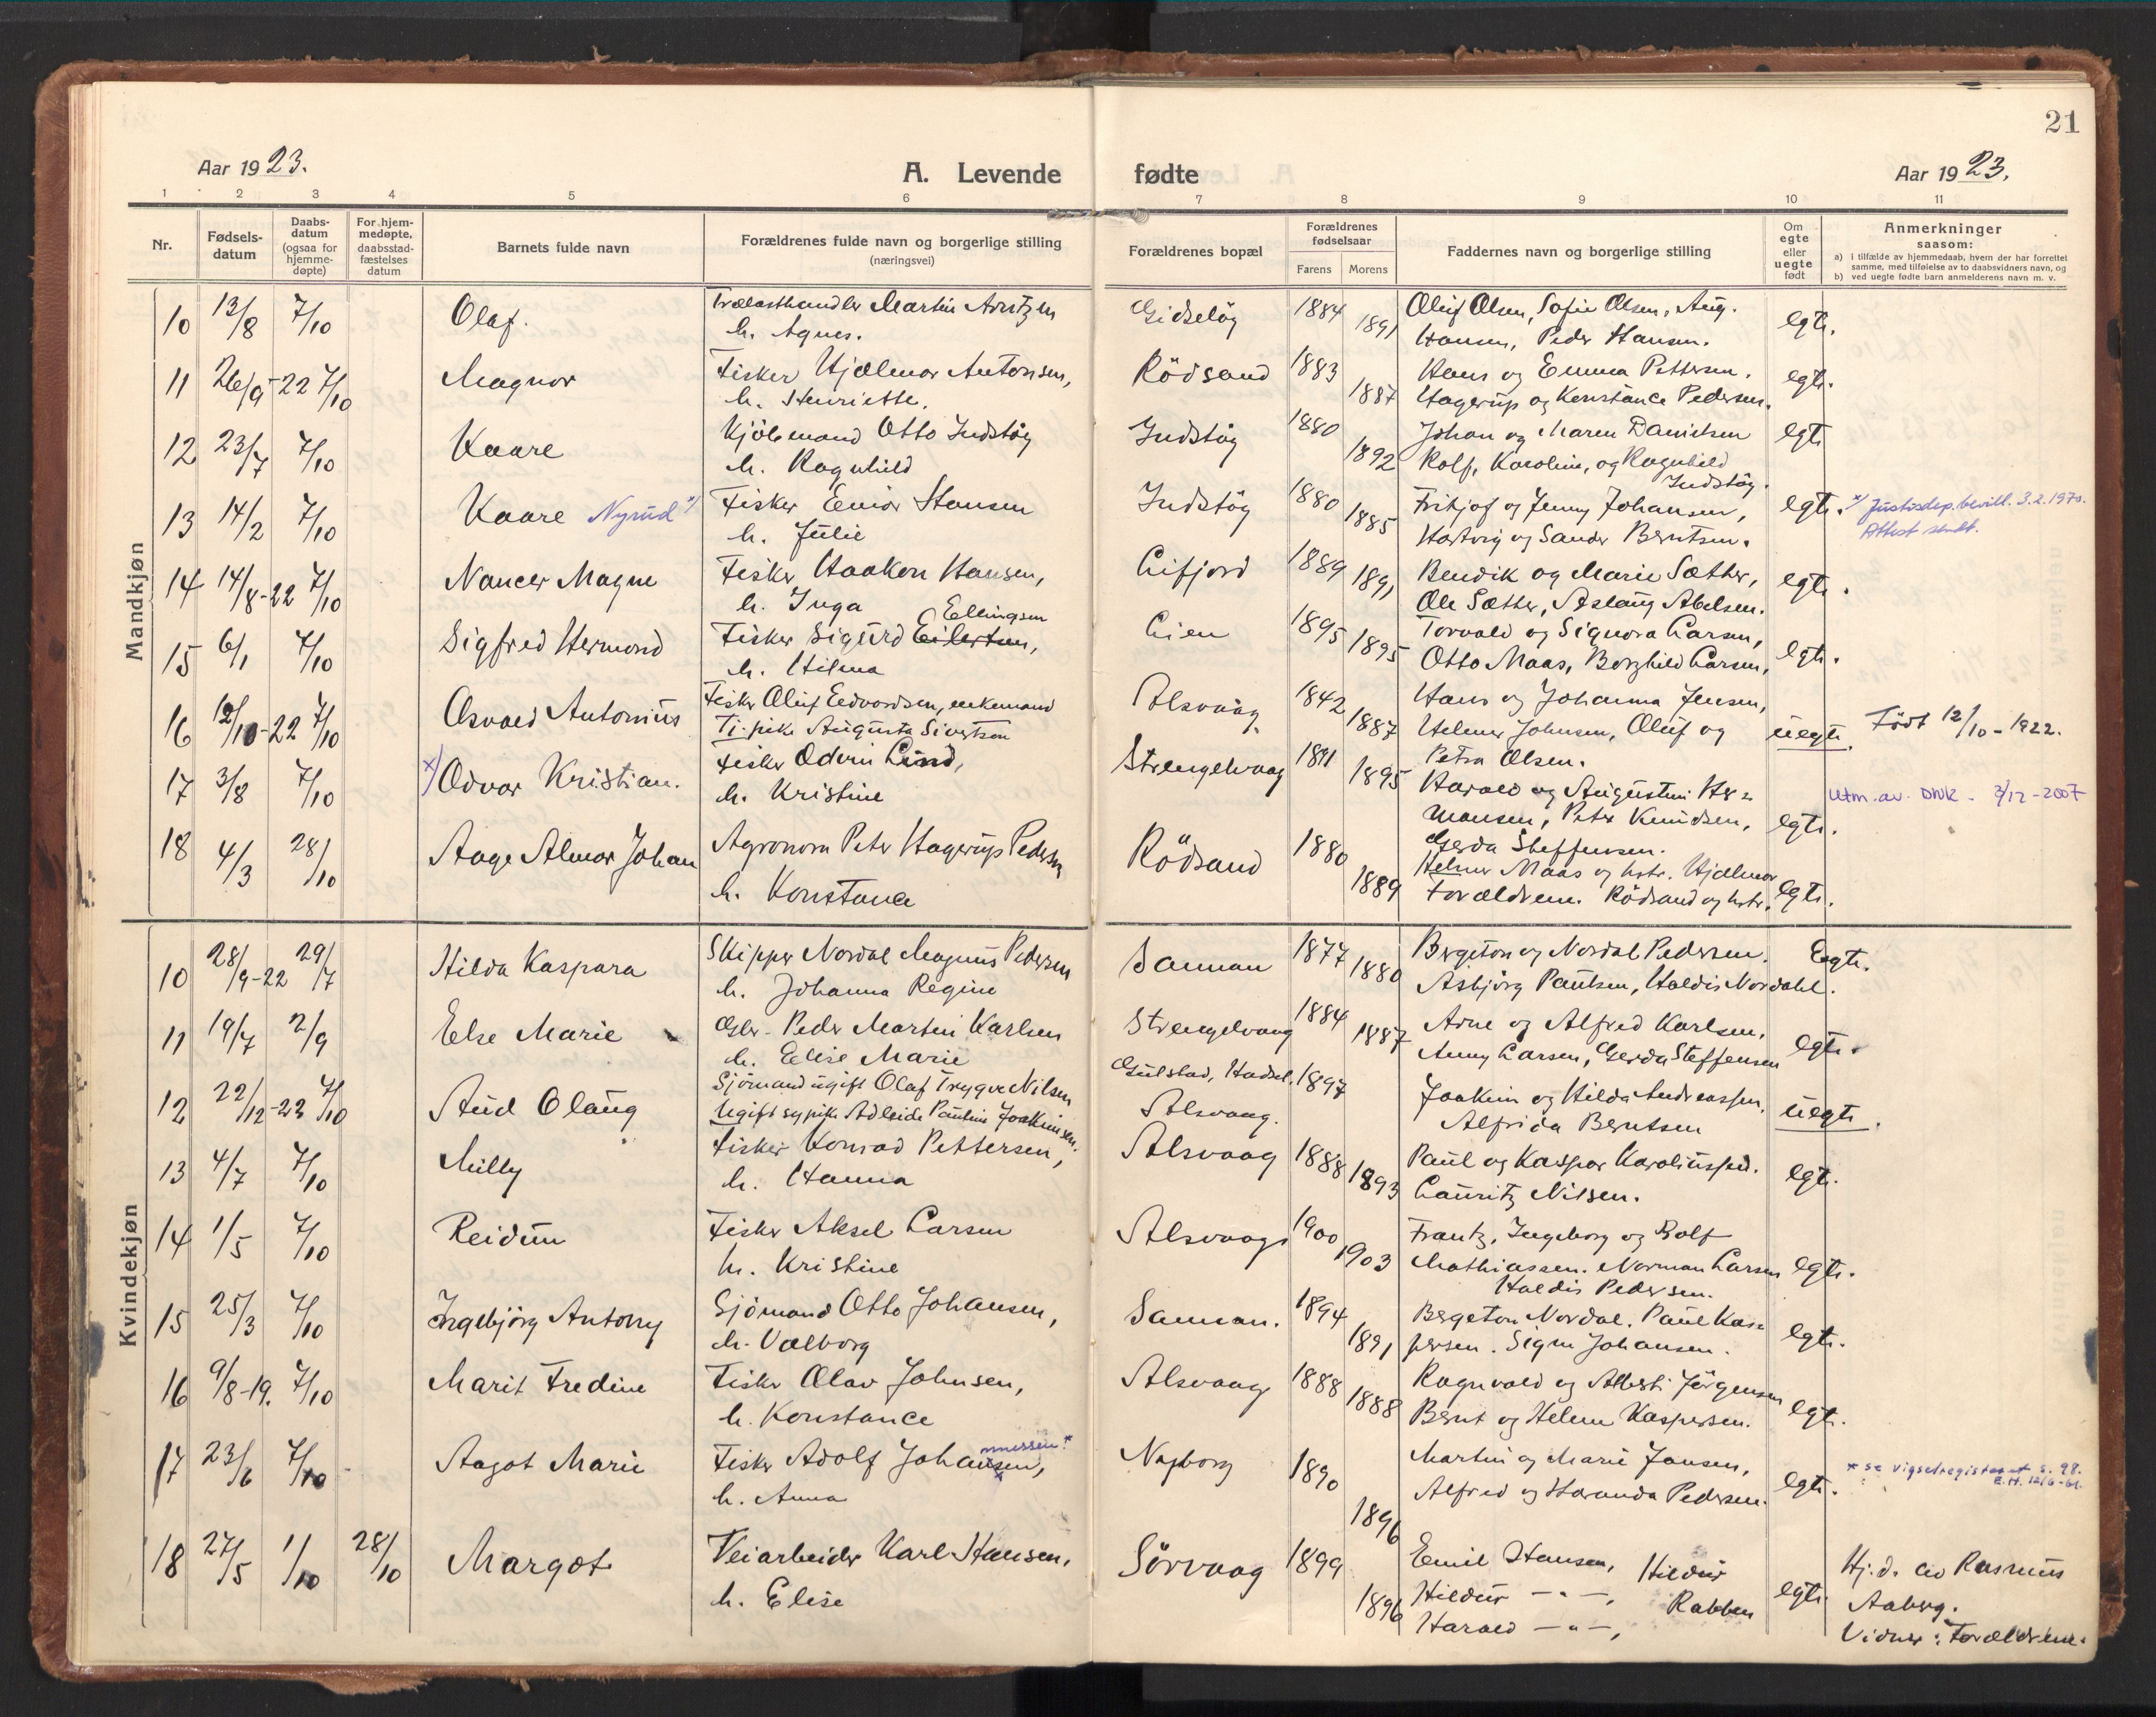 21
Aar 1923.
A. Levende fødte
Aar 1923.
1 2 3 4 5 6 7 8 9 10 11
Nr.
Fødsels-
datum
Daabs-
datum
(ogsaa for
hjemme-
døpte)
For hjem-
medøpte,
daabsstad-
fæstelses
datum
Barnets fulde navn
Forældrenes fulde navn og borgerlige stilling
(næringsvei)
Forældrenes bopæl
Forældrenes
fødselsaar
Farens Morens
Faddernes navn og borgerlige stilling
Om
egte
eller
uegte
født
Anmerkninger
saasom:
a) i tilfælde av hjemmedaab, hvem der har forrettet
samme, med tilføielse av to daabsvidners navn, og
b) ved uegte fødte barn anmelderens navn m. v.
Mandkjøn
10 13/8 7/10 Olaf. Trælasthandler Martin Arntzen Gidsløy 1884 Oluf Olsen, Sofie Olsen, Aug. egte.
h. Agnes. 1891 Hansen, Peder Hansen.
11 26/9-22 7/10 Magnor Fisker Hjalmar Antonsen, Rödsand 1883 Hans og Emma Pettersen. egte.
h. Henriette. 1887 Hagerup og Konstance Pedersen.
12 23/7 7/10 Kaare Kjöbmand Otto Indstöy Indstöy 1880 Johan og Maren Danielsen egte
h. Ragnhild 1892 Rolf, Karoline, og Ragnhild
Indstöy.
13 14/2 7/10 Kaare Nyrud x) Fisker Einar Hansen Indstöy 1880 Fritjof og Jenny Johansen, egte. x) Justisdep. bevill. 3.2.1970.
h. Julie 1885 Hartvig og Sander Berntsen. Attest sendt.
14 14/8-22 7/10 Nancer Magne Fisker Haakon Hansen, Lifjord 1889 Bendik og Marie Sæther, egte.
h. Inga 1891 Ole Sæther, Aslaug Abelsen.
Ellingsen
15 6/1 7/10 Sigfred Hermond Fisker Sigurd Eilertsen, Lien 1895 Torvald og Signora Larsen, egte.
h. Hilma 1895 Otto Maas, Borghild Larsen,
16 12/10-22 7/10 Osvald Antonius Fisker Oluf Edvardsen, enkemand Alsvaag 1842 Hans og Johanna Jensen,
Tj. pike Augusta Sivertsen 1887 Helmer Johnsen, Oluf og uegte. Född 12/10-1922.
Petra Olsen.
17 3/8 7/10 x) Odvar Kristian. Fisker Odin Lind, Strengelvaag 1891 Harald og Augustin Her=
h. Kristine 1895 mansen, Peter Knudsen, egte. Utm. av. DNK. 3/12-2007
Gerda Steffensen.
18 4/3 28/10 Aage Almar Johan Agronom Peter Hagerup Pedersen Rödsand 1880 Helmer Maas og hstr. Hjalmar
h. Konstance 1889 Forældrene. Rödsand og hstr. egte.
Kvindekjøn
10 28/9-22 29/7 Hilda Kaspara Skipper Nordal Magnus Pedersen Sannan 1877 Bergeton og Nordal Pedersen. Egte.
h. Johanna Regine 1880 Asbjörg Paulsen, Haldis Nordahl.
11 19/7 2/9 Else Marie Gbr. Peder Martin Karlsen Strengelvaag 1884 Arne og Alfred Karlsen, egte.
h. Elise Marie 1887 Anny Larsen, Gerda Steffensen
12 22/12-22 7/10 Aud Olaug Sjömand ugift Olaf Trygve Nilsen Gulstad, Hadsel. 1897 Joakim og Hilda Andreassen, uegte.
Ugift sypike Adleide Pauline Joakimsen. Alsvaag. Alfrida Berntsen
13 4/7 7/10 Milly Fisker Konrad Pettersen, Alsvaag 1888 Paul og Kaspar Karoliussen. egte.
h. Hanna 1893 Lauritz Nilsen.
14 1/5 7/10 Reidun Fisker Aksel Larsen Alsvaag 1900 Frantz, Ingeborg og Rolf
h. Kristine 1903 Mathiassen. Norman Larsen egte.
Haldis Pedersen.
15 25/3 7/10 Ingebjörg Antony Sjömand Otto Johansen, Sannan. 1894 Bergeton Nordal. Paul Kas=
h. Valborg 1891 persen. Signe Johansen. egte.
16 9/8-19. 7/10 Marit Fredine Fisker Olav Johnsen, Alsvaag 1888 Ragnvald og Alberti Jörgensen
h. Konstance 1888 Bernt og Helene Kaspersen. egte.
17 23/6 7/10 Aagot Marie Fisker Adolf Johansen, nnessen* Nyborg 1890 Martin og Marie Jansen, egte. * se vigselregisteret s. 98.
h. Anna 1896 Alfred og Haranda Pedersen. E.H. 12/6-61.
18 27/5 1/10 28/10 Margot Veiarbeider Karl Hansen, Sörvaag 1899 Emil Hansen, Hildur Hj. d. av Rasmus
h. Elise 1896 Hildur -"-, Rabben egte. Aaberg.
Harald -"-, Vidner: Forældrene.